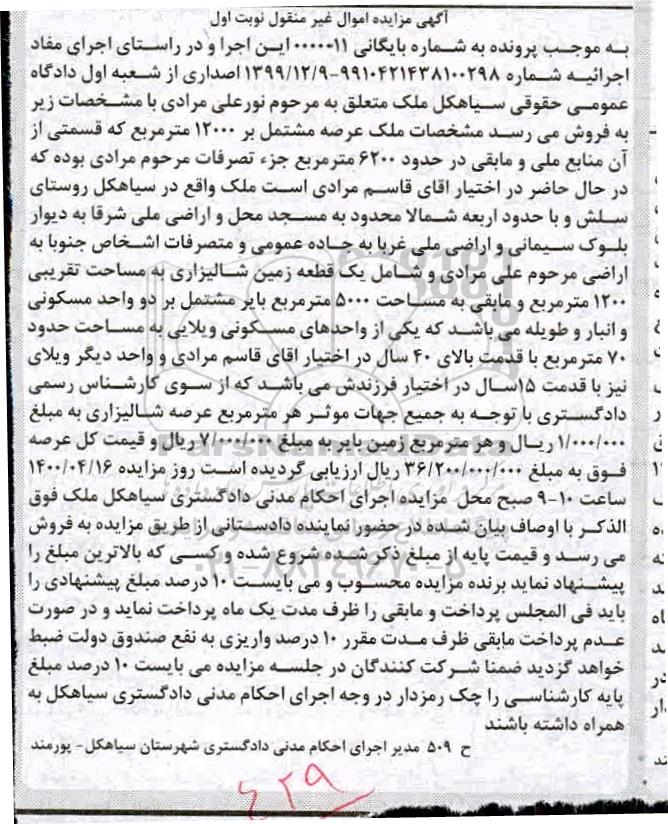 آگهی مزایده اموال غیر منقول نوبت اول
به موجب پرونده به شماره بایگانی ۰۰۰۰۰۱۱ این اجرا و در راستای اجرای مفاد
اجرائیه شماره ۹۹۱۰۴۲۱۴۳۸۱۰۰۲۹۸-۱۳۹۹/۱۲/۹ اصداری از شعبه اول دادگاه
عمومی حقوقی سیاهکل ملک متعلق به مرحوم نورعلی مرادی با مشخصات زیر
به فروش می رسد مشخصات ملک عرصه مشتمل بر ۱۲۰۰۰ مترمربع که قسمتی از
آن منابع ملی و مابقی در حدود ۶۲۰۰ مترمربع جزء تصرفات مرحوم مرادی بوده که
در حال حاضر در اختیار اقای قاسم مرادی است ملک واقع در سیاهکل روستای
سلش و با حدود اربعه شمالا محدود به مسجد محل و اراضی ملی شرقا به دیوار
بلوک سیمانی و اراضی ملی غربا به جاده عمومی و متصرفات اشخاص جنوبا به
اراضی مرحوم علی مرادی و شامل یک قطعه زمین شالیزاری به مساحت تقریبی
۱۲۰۰ مترمربع و مابقی به مساحت ۵۰۰۰ مترمربع بایر مشتمل بر دو واحد مسکونی
و انبار و طویله می باشد که یکی از واحدهای مسکونی ویلایی به مساحت حدود
۷۰ مترمربع با قدمت بالای ۴۰ سال در اختیار اقای قاسم مرادی و واحد دیگر ویلای
نیز با قدمت ۱۵سال در اختیار فرزندش می باشد که از سوی کارشناس رسمی
دادگستری با توجه به جمیع جهات موثر هر مترمربع عرصه شالیزاری به مبلغ
۱/۰۰۰/۰۰۰ ریال و هر مترمربع زمین بایر به مبلغ ۷/۰۰۰/۰۰۰ ریال و قیمت کل عرصه
فوق به مبلغ ۳۶/۲۰۰/۰۰۰/۰۰۰ ریال ارزیابی گردیده است روز مزایده ۱۴۰۰/۰۴/۱۶
ساعت ۱۰-۹ صبح محل مزایده اجرای احکام مدنی دادگستری سیاهکل ملک فوق
الذکر با اوصاف بیان شده در حضور نماینده دادستانی از طریق مزایده به فروش
می رسد و قیمت پایه از مبلغ ذکر شده شروع شده و کسی که بالاترین مبلغ را
پیشنهاد نماید برنده مزایده محسوب و می بایست ۱۰ درصد مبلغ پیشنهادی را
باید فی المجلس پرداخت و مابقی را ظرف مدت یک ماه پرداخت نماید و در صورت
عدم پرداخت مابقی ظرف مدت مقرر ۱۰ درصد واریزی به نفع صندوق دولت ضبط
خواهد گردید ضمنا شرکت کنندگان در جلسه مزایده می بایست ۱۰ درصد مبلغ
پایه کارشناسی را چک رمزدار در وجه اجرای احکام مدنی دادگستری سیاهکل به
همراه داشته باشند
ح ۵۰۹ مدیر اجرای احکام مدنی دادگستری شهرستان سیاهکل- پورمند